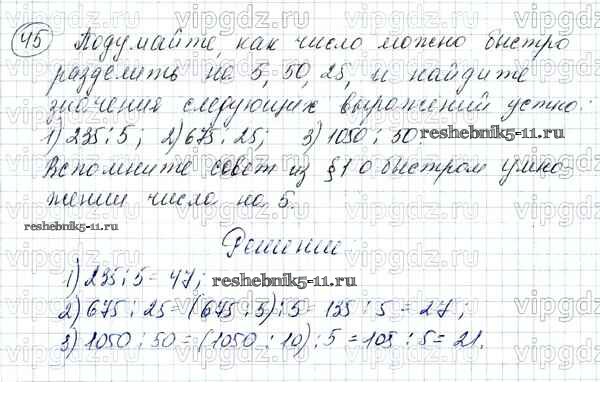 45 Подумайте, как число можно быстро
разделить на 5, 50, 25, и найдите
значения следующих выражений устно:
1) 235 : 5; 2) 675 : 25; 3) 1050 : 50. reshebnik5-11.ru
Вспомните совет из §1 о быстром умно-
жении числа на 5.
reshebnik5-11.ru
Решение:
1) 235 : 5 = 47; reshebnik5-11.ru
2) 675 : 25 = (675 : 5) : 5 = 135 : 5 = 27;
3) 1050 : 50 = (1050 : 10) : 5 = 105 : 5 = 21.
vipgdz.ru